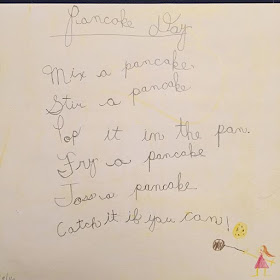 Pancake Day
Mix a pancake.
Stir a pancake
Pop it in the pan.
Fry a pancake
Toss a pancake
Catch it if you can!